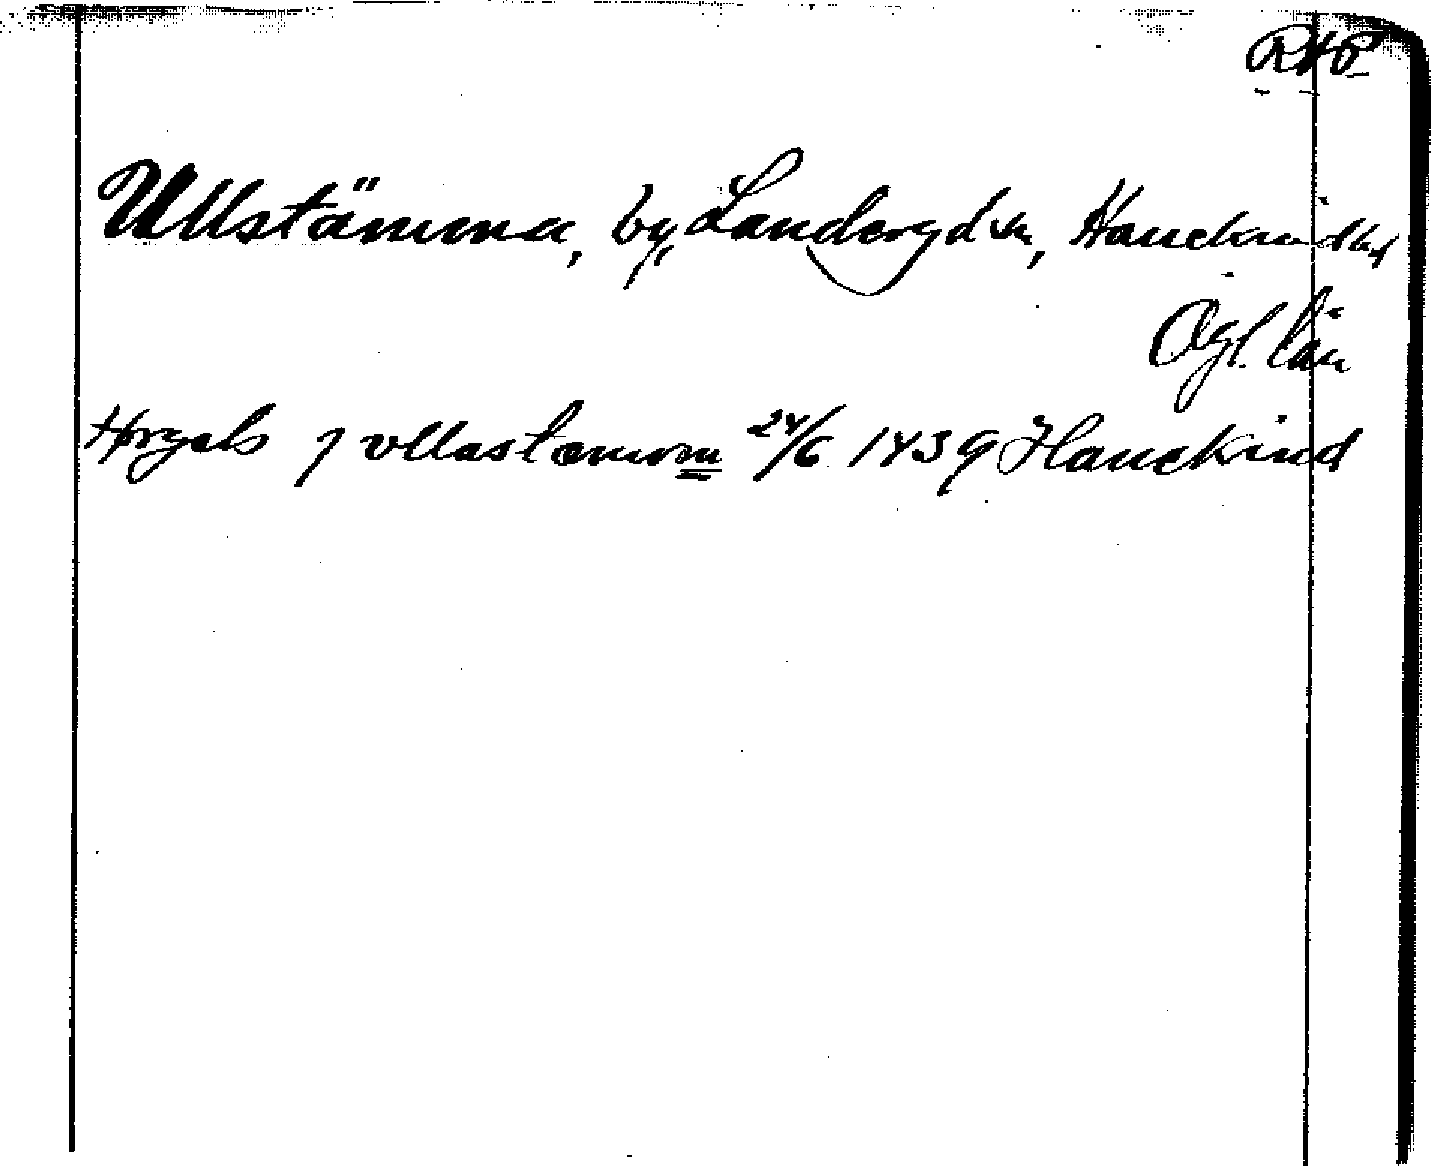 RAP
Ullstämma, by, Landeryds sn, Hanekinds hd
Ögl. län
Høryels j vllastæmom 24/6 1439 Hanekind